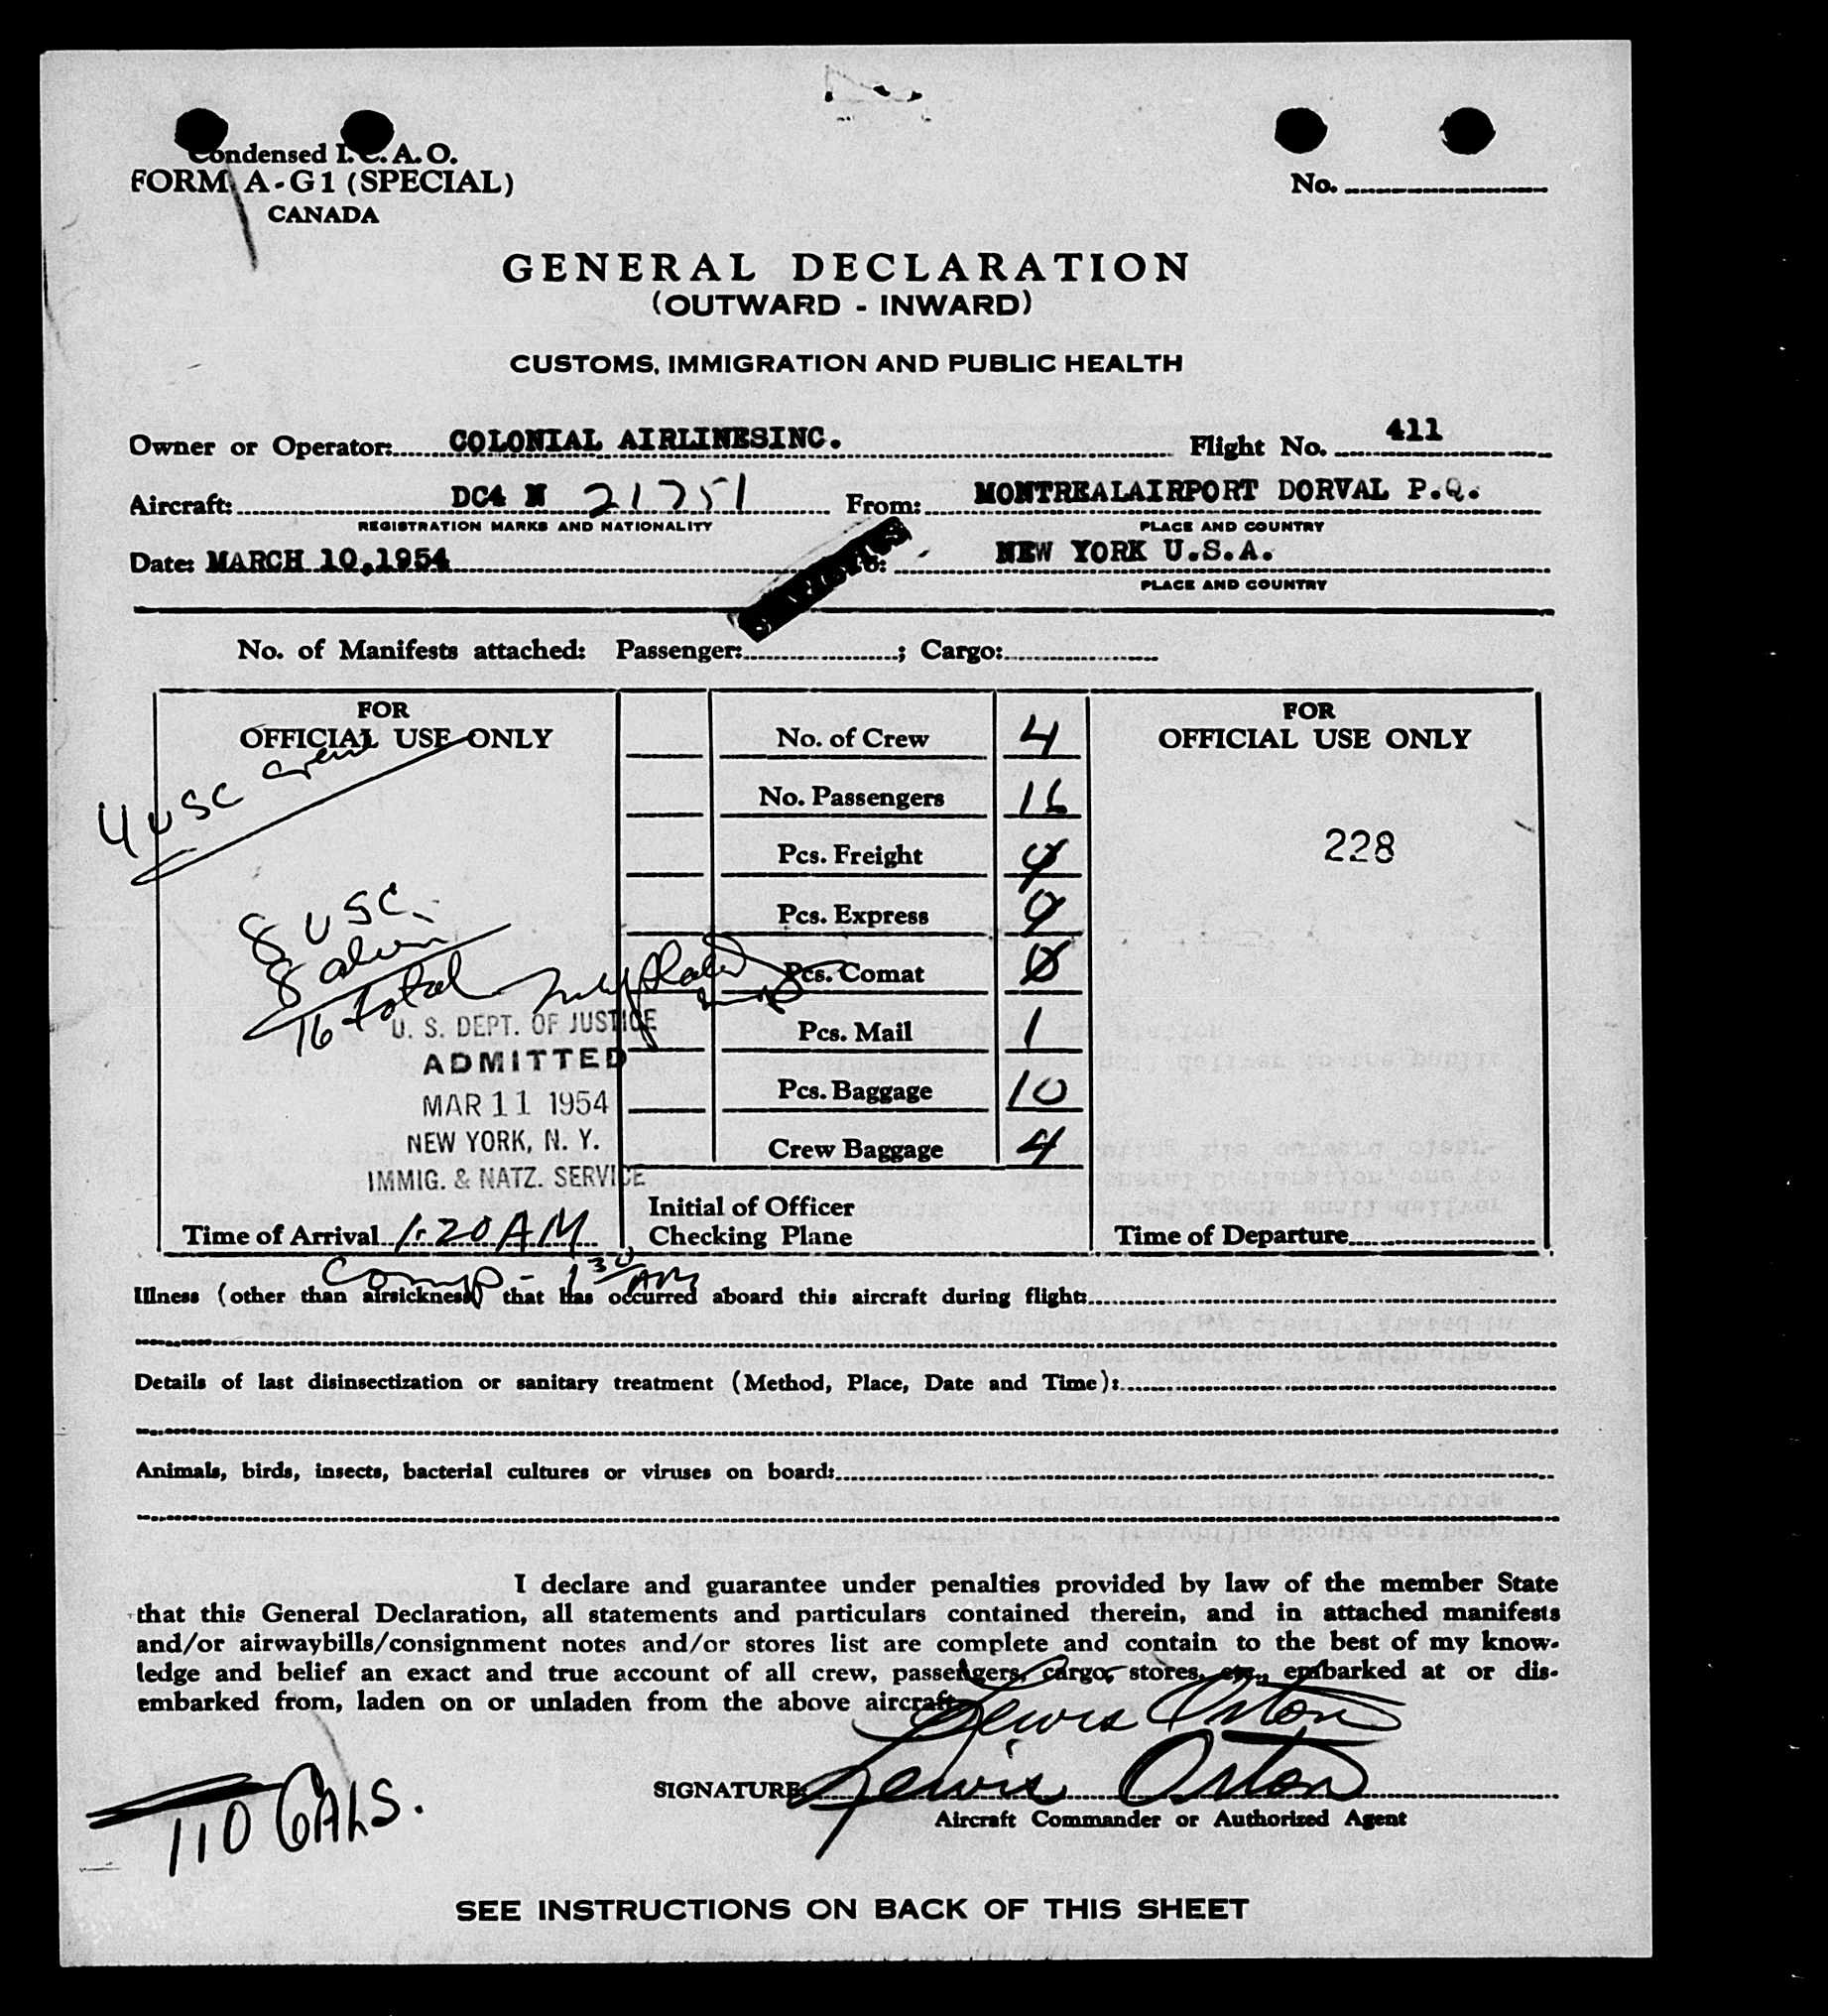 Condensed I.C.A.O.
FORM A-G1 (SPECIAL)
CANADA
No.
GENERAL DECLARATION
(OUTWARD - INWARD)
CUSTOMS, IMMIGRATION AND PUBLIC HEALTH
Owner or Operator: COLONIAL AIRLINESINC. Flight No. 411
Aircraft: DC4 N 21751 From: MONTREALAIRPORT DORVAL P.Q.
REGISTRATION MARKS AND NATIONALITY PLACE AND COUNTRY
Date: MARCH 10,1954 NEW YORK U.S.A.
PLACE AND COUNTRY
No. of Manifests attached: Passenger: ; Cargo:
FOR
OFFICIAL USE ONLY
4 USC crew
8 USC
8 alien
16 total
U. S. DEPT. OF JUSTICE
ADMITTED
MAR 11 1954
NEW YORK, N. Y.
IMMIG. & NATZ. SERVICE
Time of Arrival 1:20 AM
No. of Crew 4
No. Passengers 16
Pcs. Freight
Pcs. Express
Pcs. Comat 0
Pcs. Mail 1
Pcs. Baggage 10
Crew Baggage 4
Initial of Officer
Checking Plane
FOR
OFFICIAL USE ONLY
228
Time of Departure
Comp - 1 30 AM
Illness (other than airsickness) that has occurred aboard this aircraft during flight:
Details of last disinsectization or sanitary treatment (Method, Place, Date and Time):
Animals, birds, insects, bacterial cultures or viruses on board:
I declare and guarantee under penalties provided by law of the member State
that this General Declaration, all statements and particulars contained therein, and in attached manifests
and/or airwaybills/consignment notes and/or stores list are complete and contain to the best of my know-
ledge and belief an exact and true account of all crew, passengers, cargo, stores, etc., embarked at or dis-
embarked from, laden on or unladen from the above aircraft.
Lewis Orton
SIGNATURE: Lewis Orton
Aircraft Commander or Authorized Agent
110 GALS.
SEE INSTRUCTIONS ON BACK OF THIS SHEET